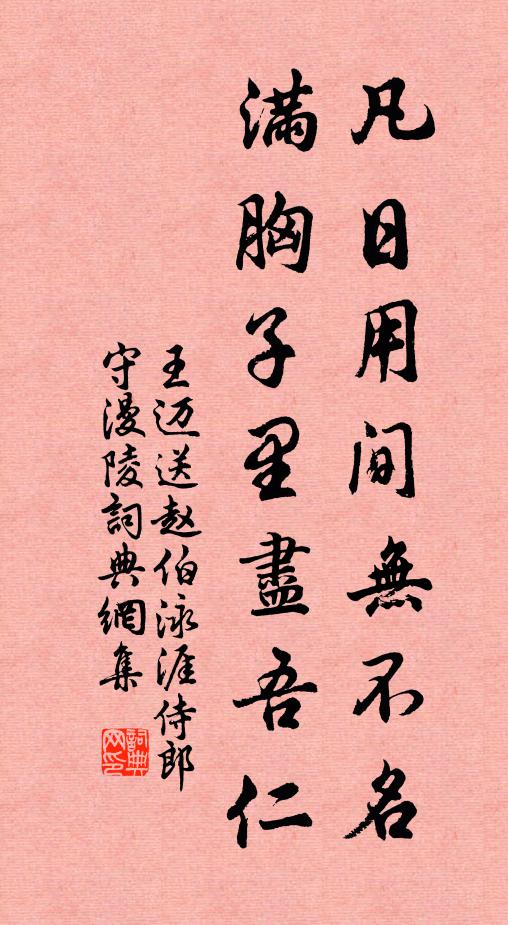 凡日用間無不名
滿胸子里盡吾仁
王迈送赵伯泳涯侍郎
守漫陵詞典網集
詞典
网印